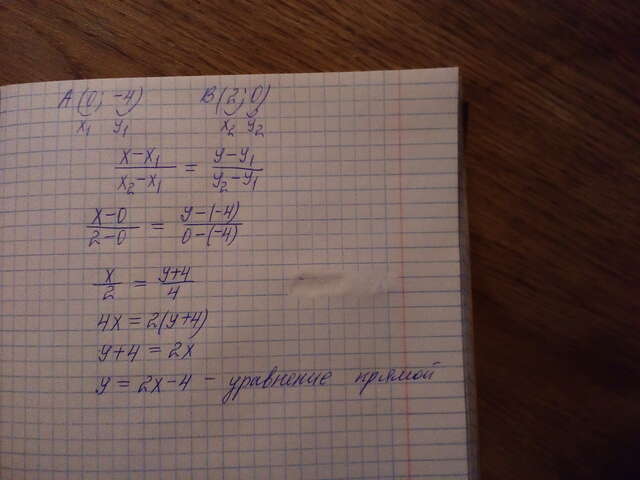 A (0; -4) B(2; 0)
x₁ y₁ x₂ y₂
x-x₁ / x₂-x₁ = y-y₁ / y₂-y₁
x-0 / 2-0 = y-(-4) / 0-(-4)
x / 2 = y+4 / 4
4x = 2(y+4)
y+4 = 2x
y = 2x-4 - уравнение прямой